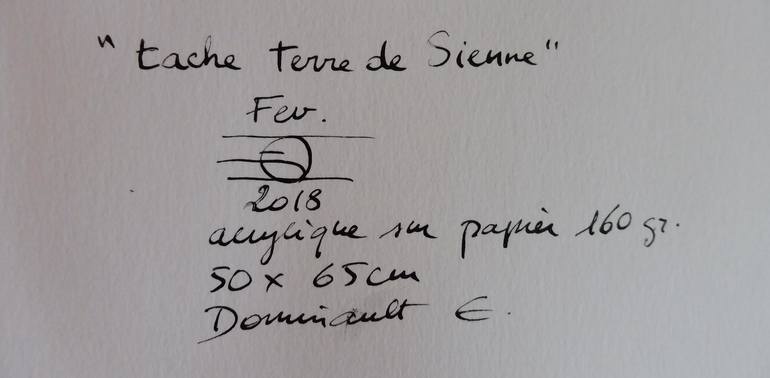 "tache terre de Sienne"
Fev.
2018
acrylique sur papier 160 gr.
50 x 65 cm
Dominault E.